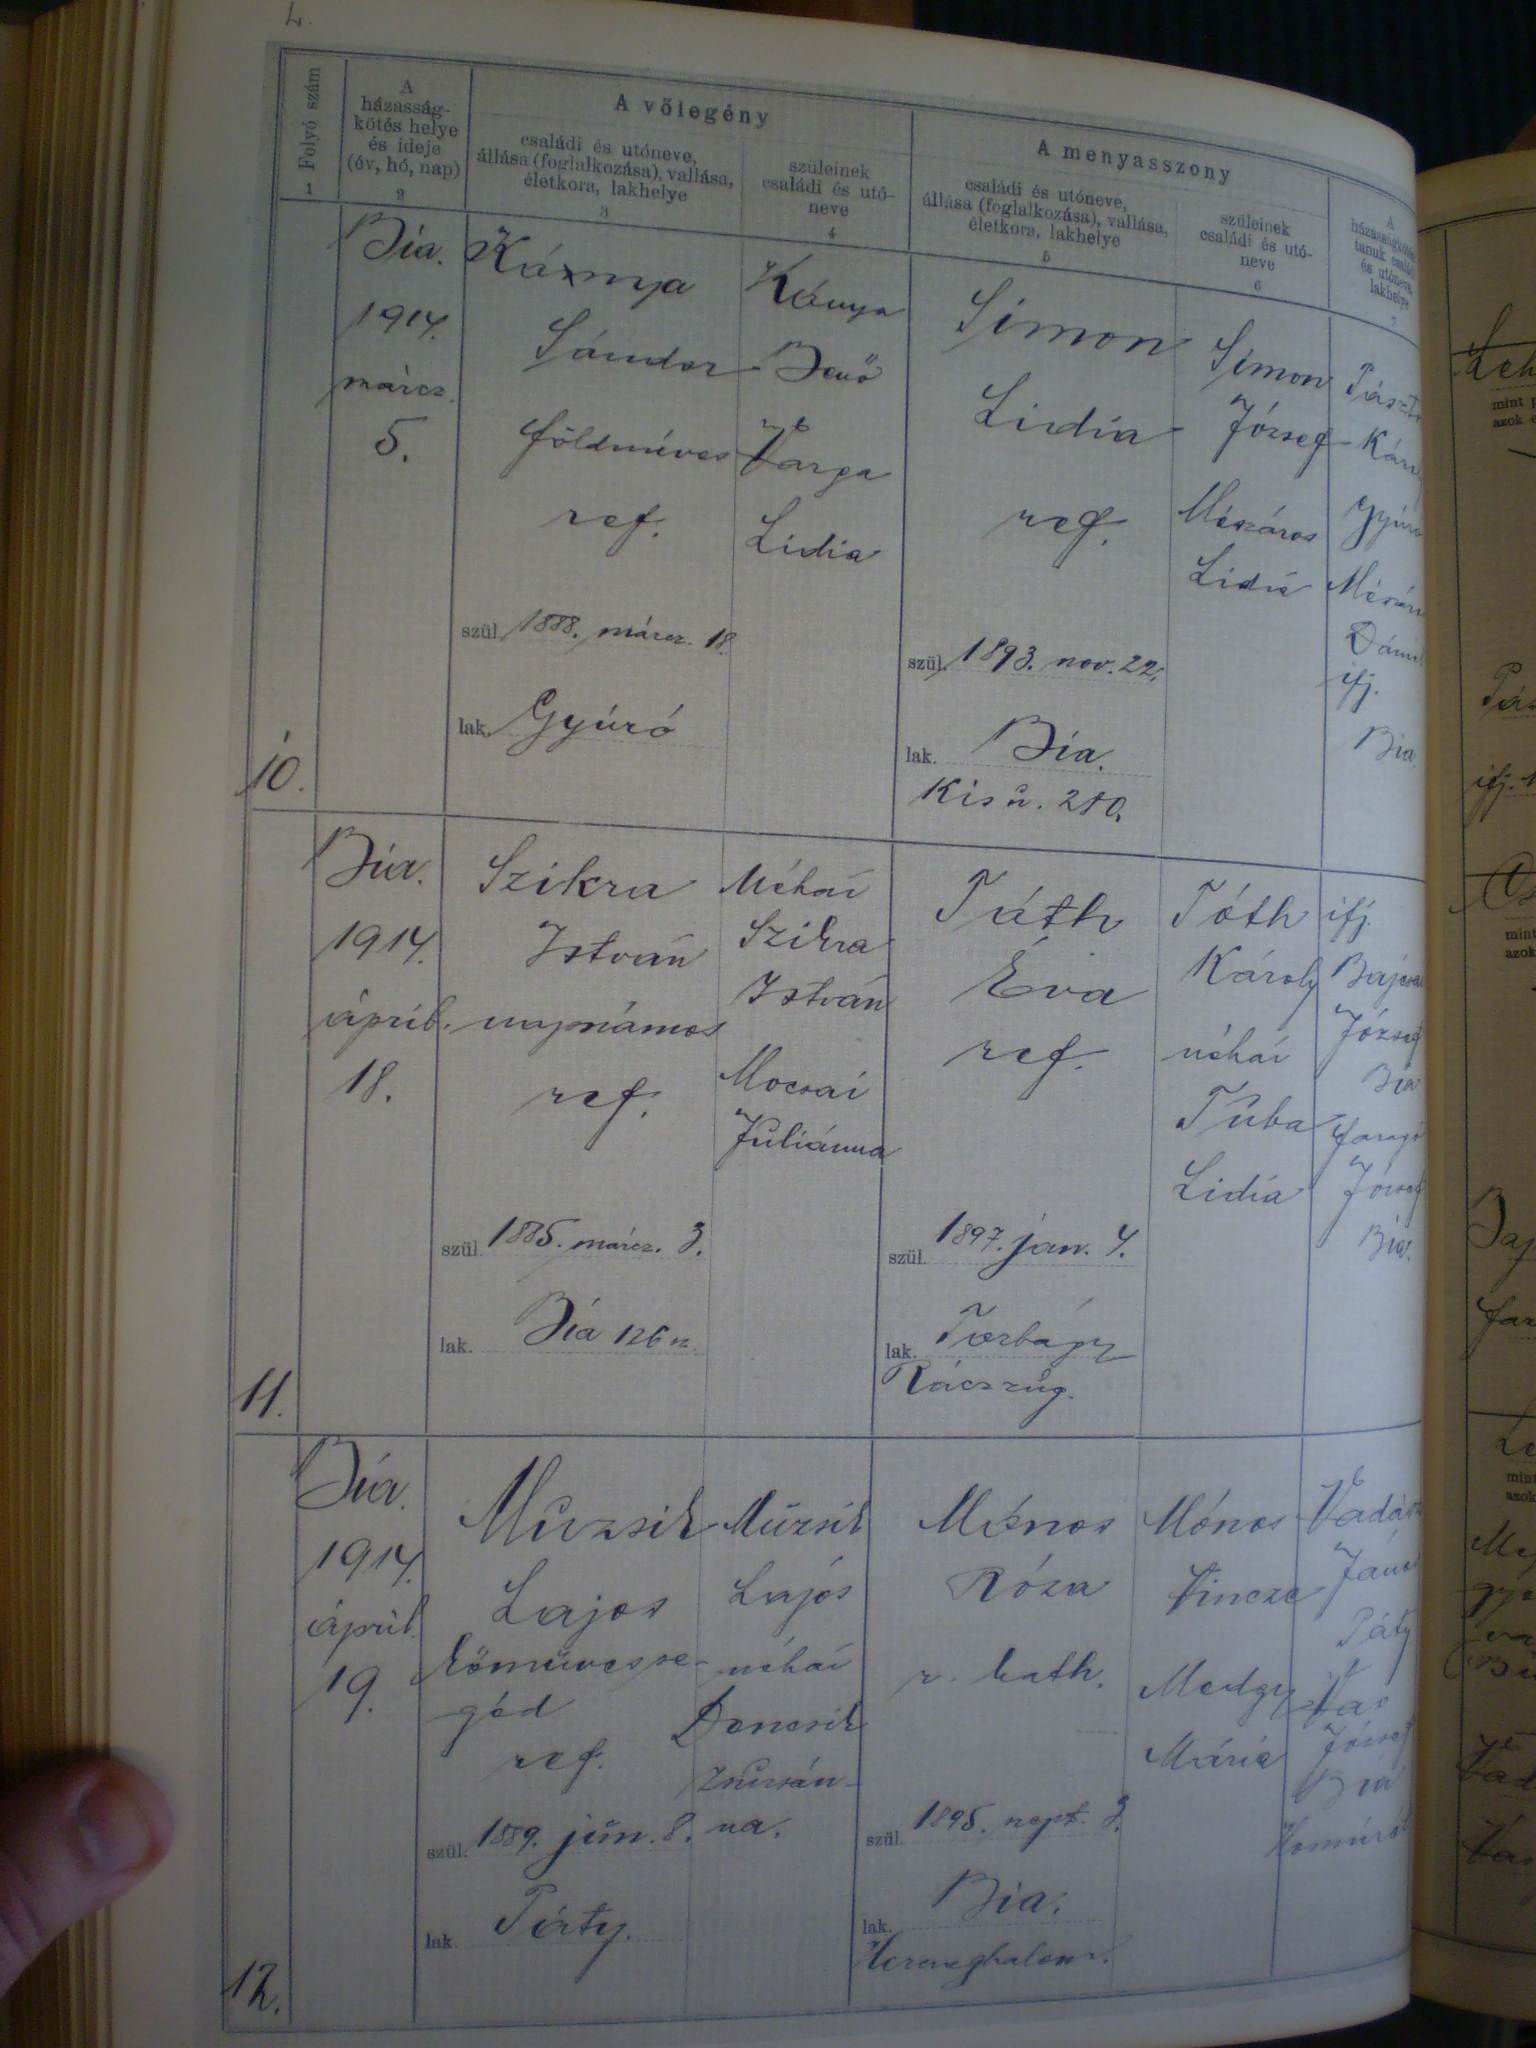 L.
Folyó szám
1
A
házasság-
kötés helye
és ideje
(év, hó, nap)
2
A vőlegény
családi és utóneve,
állása (foglalkozása), vallása,
életkora, lakhelye
3
szüleinek
családi és utó-
neve
4
A menyasszony
családi és utóneve,
állása (foglalkozása), vallása,
életkora, lakhelye
5
szüleinek
családi és utó-
neve
6
A
tanuk
és utóneve,
lakhelye
7
10.
Bia.
1914.
márcz.
5.
Kánya
Sándor
földmíves
ref.
szül. 1888. márcz. 18.
lak. Gyúró
Kánya
Benő
Varga
Lidia
Simon
Lidia
ref.
szül. 1893. nov. 22.
lak. Bia.
Kis u. 210.
Simon
József
Mészáros
Lidia
ifj.
Bia.
11.
Bia.
1914.
ápril.
18.
Szikra
István
napszámos
ref.
szül. 1885. márcz. 3.
lak. Bia 126 sz.
Néhai
Szikra
István
Mocsai
Juliánna
Tóth
Éva
ref.
szül. 1897. jan. 4.
lak. Torbágy
Ráczzúg.
Tóth
Károly
néhai
Tuba
Lidia
ifj.
József
Bia
József
Bia.
12.
Bia.
1914.
ápril.
19.
Muzsik
Lajos
kőművesse-
géd
ref.
szül. 1889. jún. 8.
lak. Páty.
Muzsik
Lajos
néhai
Dencsik
Zsuzsán-
na.
Mónos
Róza
r. kath.
szül. 1895. szept. 3.
lak. Bia.
Herczeghalom.
Mónos
Vincze
Medgy
Mária
Páty
Vas
József
Bia
mint
azok
mint
azok
mint
azok